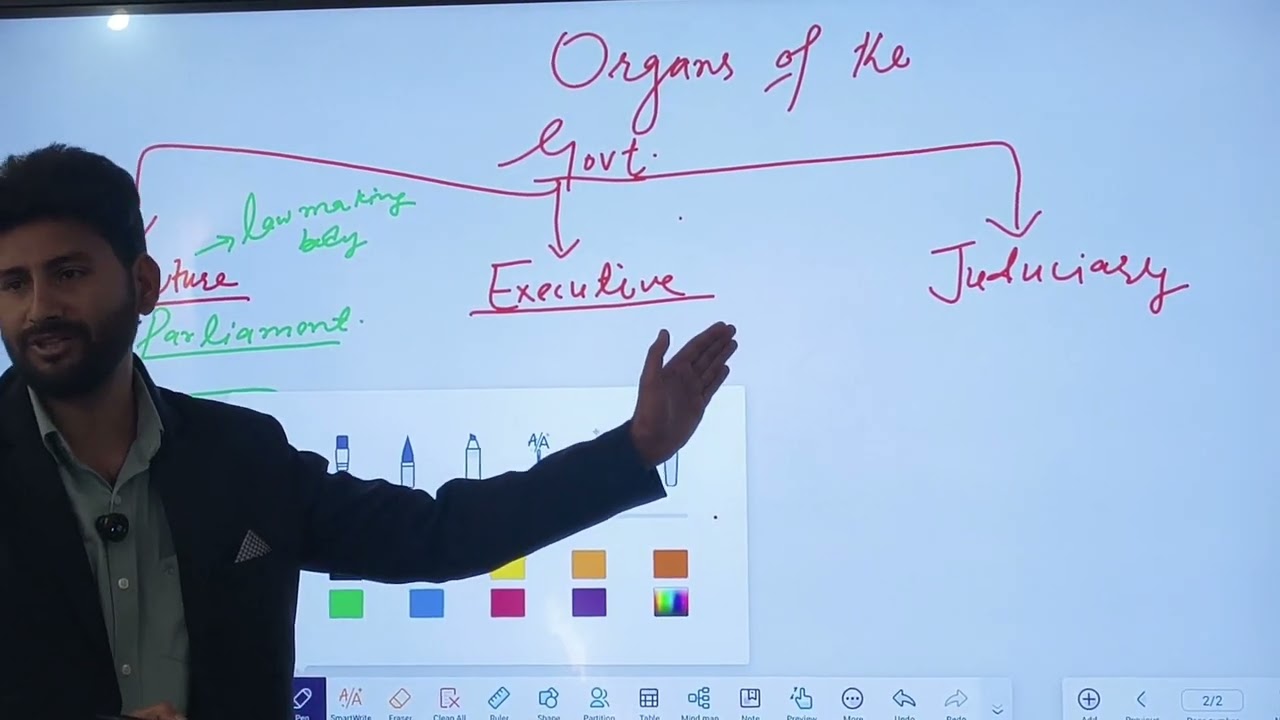 Organs of the
Govt.
law making
body
ture
Executive
Juduciary
Parliament.
A/A
A/A
Pen
SmartWrite
Eraser
Clean All
Ruler
Shape
Partition
Table
Mind map
Note
Preview
More
Undo
Redo
Add
2/2